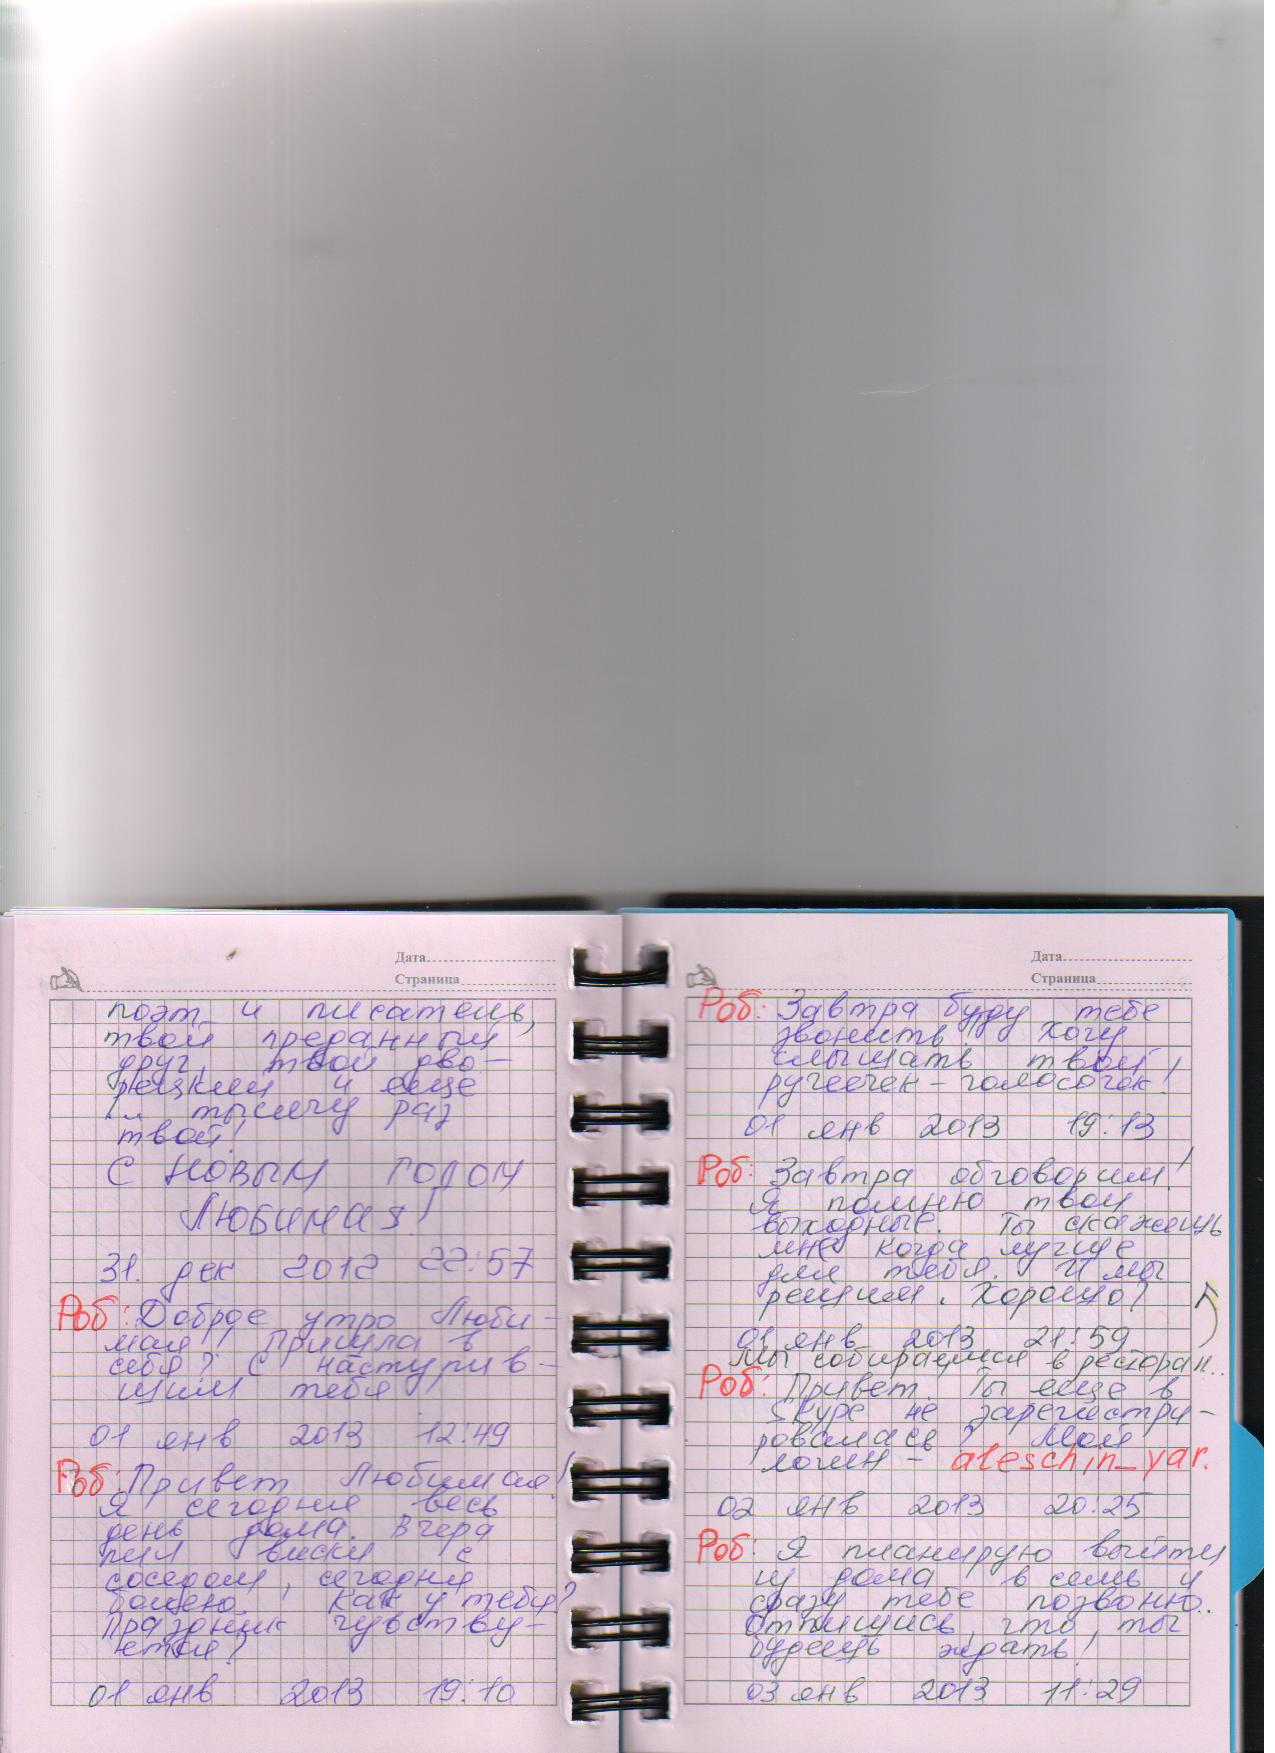 Дата
Страница
поэт и писатель,
твой преданный
друг, твой дво-
рецкий и еще
тысячу раз
твой!
С НОВЫМ ГОДОМ
Любимая!
31. дек 2012 22:57
Роб: Доброе утро Люби-
мая! Пришла в
себя? С наступив-
шим тебя
01 янв 2013 12:49
Роб: Привет Любимая!
Я сегодня весь
день дома. Вчера
пил виски с
соседом, сегодня
болею. Как у тебя?
Праздник чувству-
ется?
01 янв 2013 19:10
Дата
Страница
Роб: Завтра буду тебе
звонить. Хочу
слышать твой
ручеечек-голосочек!
01 янв 2013 19:13
Роб: Завтра обговорим!
Я помню твои
выходные. Ты скажешь
мне когда лучше
для тебя. И мы
решим. Хорошо?
01 янв 2013 21:59
Мы собираемся в ресторан..
Роб: Привет. Ты еще в
Skype не зарегистри-
ровалась? Мой
логин - aleschin_yar.
02 янв 2013 20:25
Роб: Я планирую выйти
из дома в семь и
сразу тебе позвоню..
Отпишись, что, ты
будешь ждать!
03 янв 2013 11:29